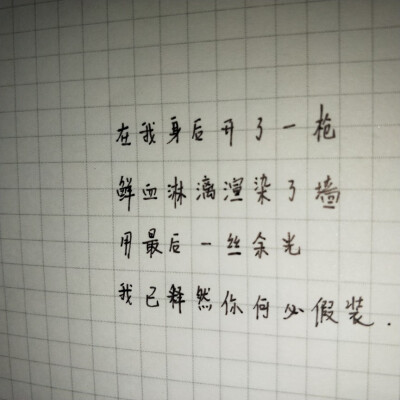 在我身后开了一枪
鲜血淋漓渲染了墙
用最后一丝余光
我已释然你何必假装.